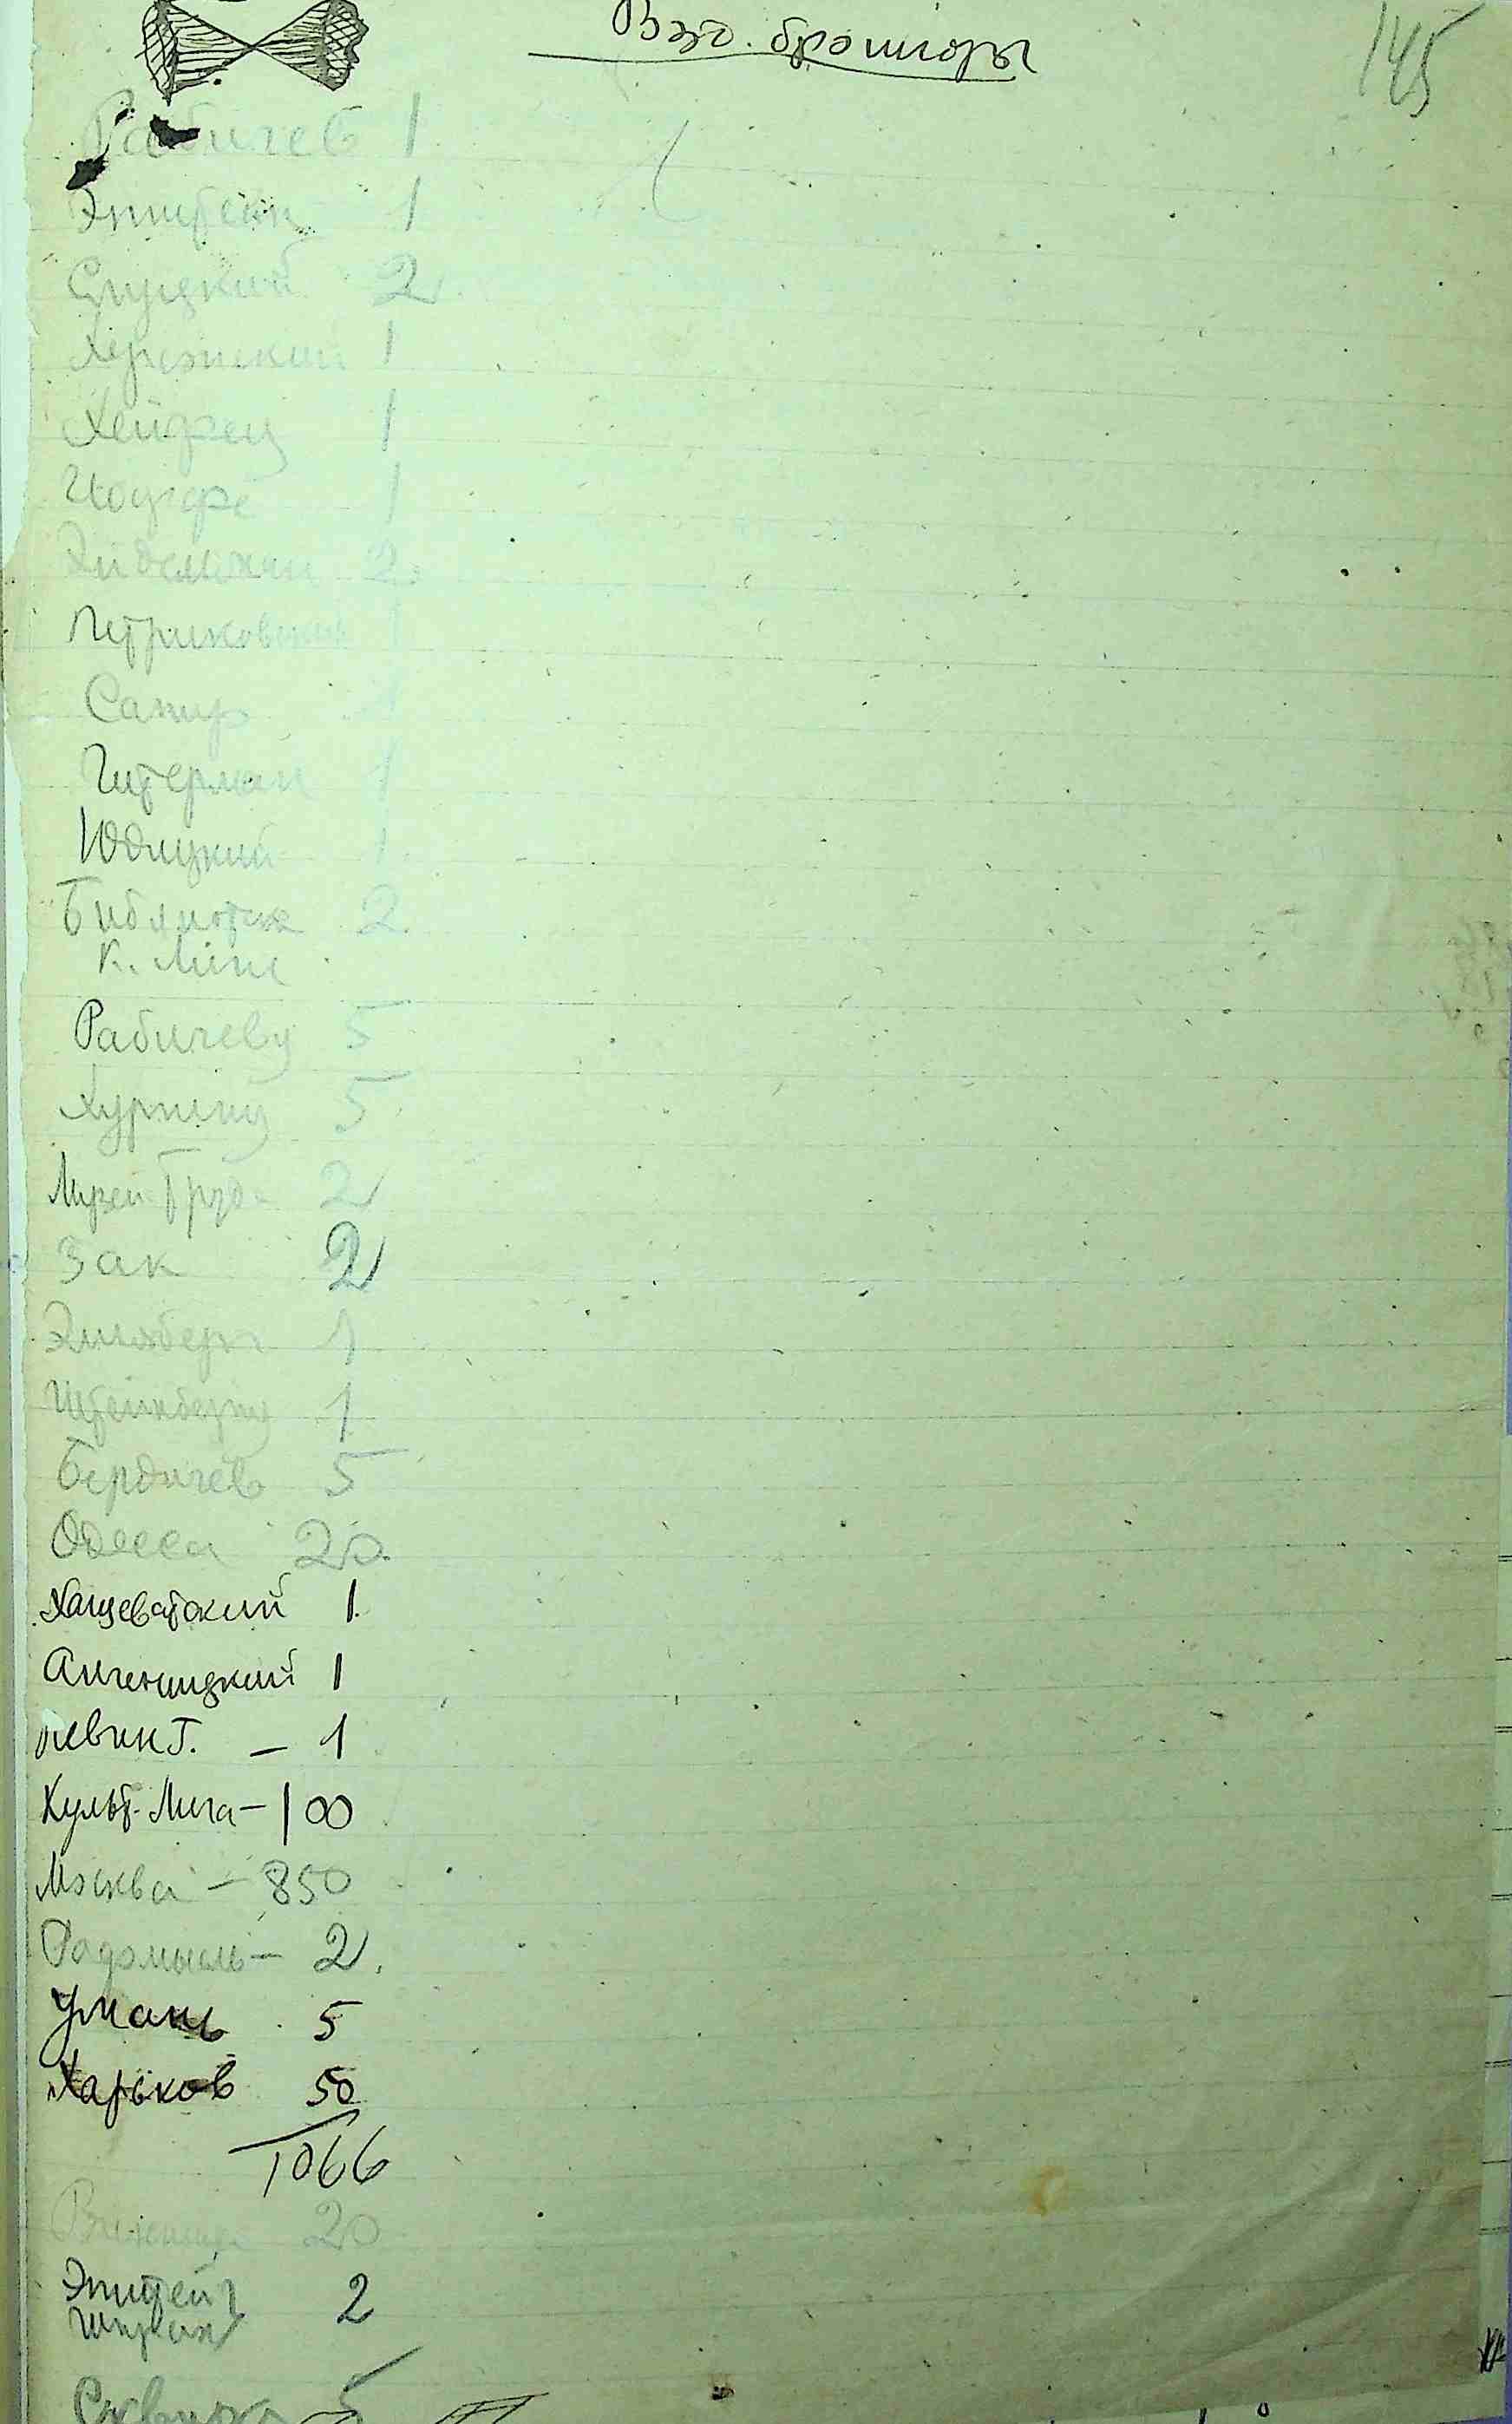 Взд. брошюры
145
Рабичев 1
Эпштейн 1
Слуцкий 2
Херсонский 1
Хейфец 1
Иоффе 1
Эйдельман 2
Петриковский 1
Сапир 1
Гитерман 1
Юдицкий 1
Библиотека 2
К. Лиги
Рабичеву 5
Хургину 5
Музей Труда 2
Зак 2
1
Штейнбергу 1
Бердичев 5
Одесса 20
Хащеватский 1
1
Левин Г. – 1
Культ-Лига – 100
Москва – 850
Радомысль – 2
Умань 5
Харьков 50
1066
Винница 20
Эпштейн 2
Шифман
Сквирка 5